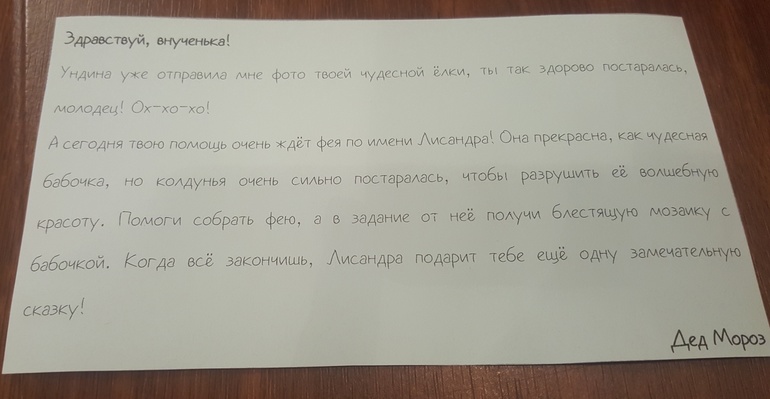 Здравствуй, внученька!
Ундина уже отправила мне фото твоей чудесной ёлки, ты так здорово постаралась,
молодец! Ох-хо-хо!
А сегодня твою помощь очень ждёт фея по имени Лисандра! Она прекрасна, как чудесная
бабочка, но колдунья очень сильно постаралась, чтобы разрушить её волшебную
красоту. Помоги собрать фею, а в задание от неё получи блестящую мозаику с
бабочкой. Когда всё закончишь, Лисандра подарит тебе ещё одну замечательную
сказку!
Дед Мороз